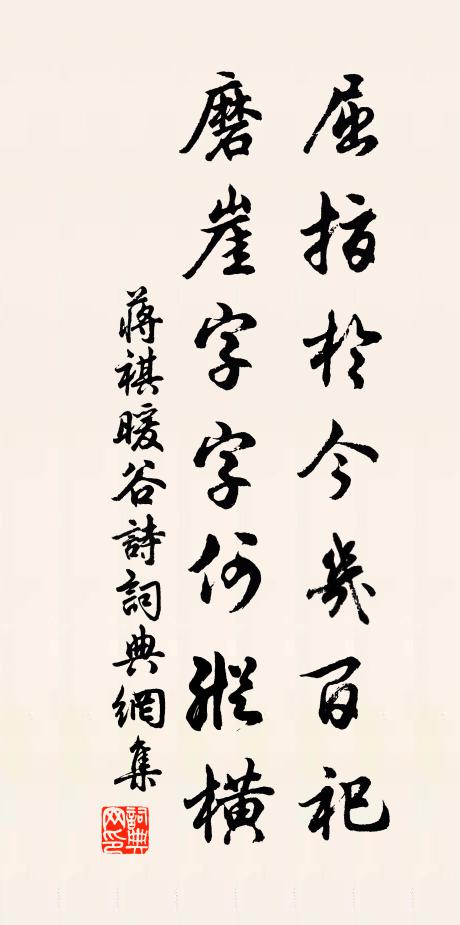 屈指於今幾百祀
磨崖字字何縱橫
蔣祺暖谷詩詞典網集
詞典网印